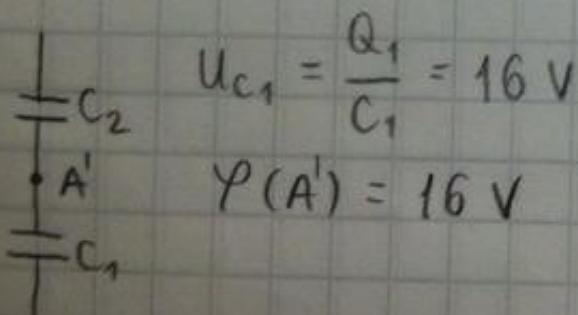 C₂
A'
C₁
U_C₁ = Q₁/C₁ = 16 V
φ(A') = 16 V